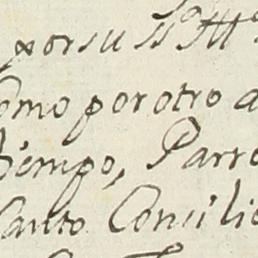 por su SS
omo por otro a
tiempo, Parro
Santo Consilio